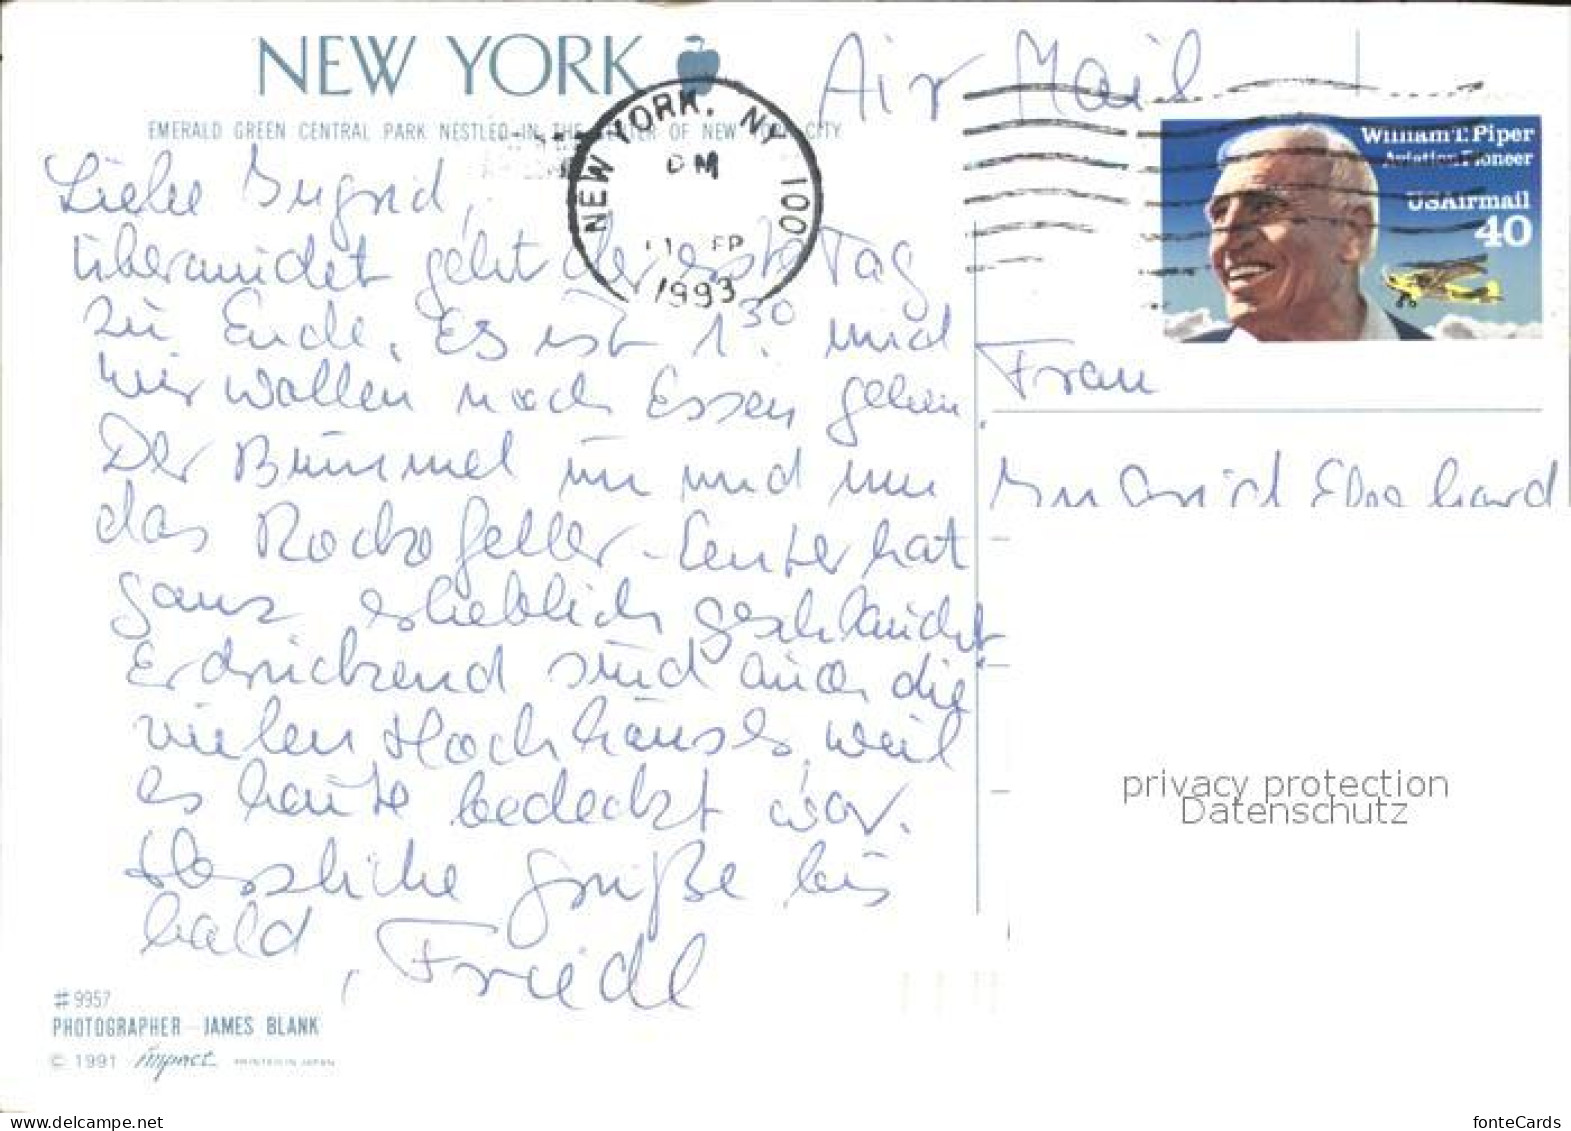 NEW YORK
EMERALD GREEN CENTRAL PARK NESTLED IN THE CENTER OF NEW YORK CITY
Air Mail
NEW YORK, NY 100
PM
1993
William T. Piper
Aviation Pioneer
USAirmail
40
Liebe Ingrid,
übermüdet geht der erste Tag
zu Ende. Es ist 1.30 und
wir wollen noch Essen gehen.
Der Bummel im und um
das Rockefeller-Center hat
ganz erheblich geschlaucht
Erdrückend sind auch die
vielen Hochhäuser, weil
es heute bedeckt war.
Herzliche Grüße bis
bald, Friedl
Frau
Ingrid Eberhard
privacy protection
Datenschutz
# 9957
PHOTOGRAPHER - JAMES BLANK
© 1991 impact PRINTED IN JAPAN
www.delcampe.net
fonteCards